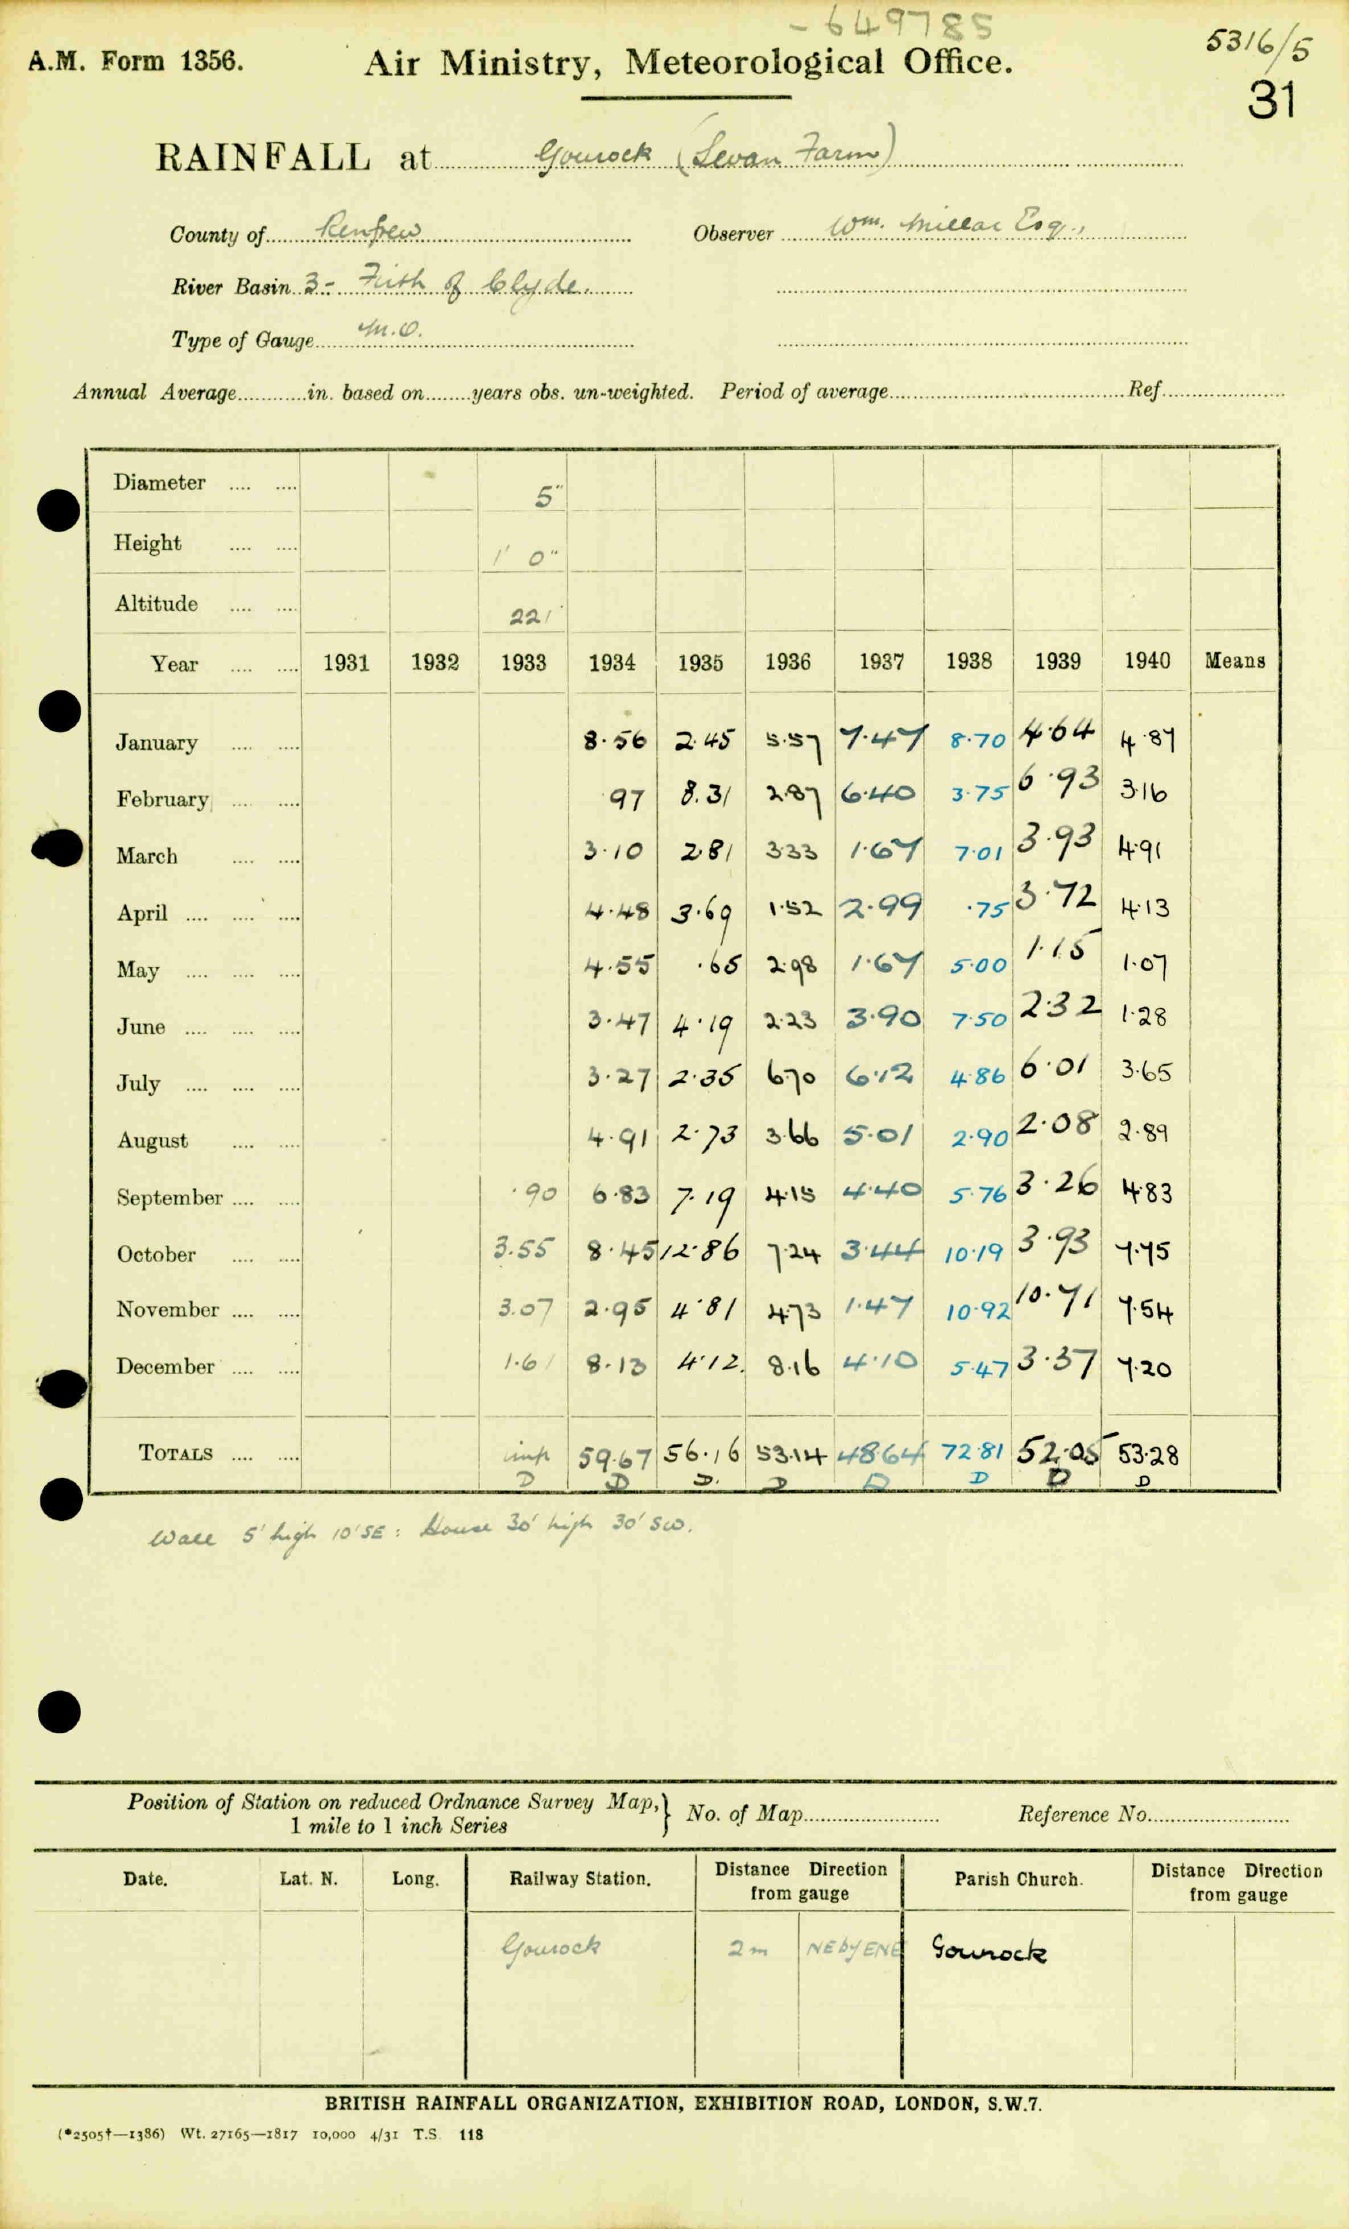 - 649785
5316/5
A.M. Form 1356. Air Ministry, Meteorological Office.
31
RAINFALL at Gourock (Levan Farm)
County of Renfrew Observer Wm. Millar Esq.,
River Basin 3- Firth of Clyde.
Type of Gauge M.O.
Annual Average............in. based on........years obs. un-weighted. Period of average........................................Ref.....................
Diameter .... .... 5"
Height .... .... 1' 0"
Altitude .... .... 221'
Year .... .... 1931 1932 1933 1934 1935 1936 1937 1938 1939 1940 Means
January .... .... 8.56 2.45 5.57 7.47 8.70 4.64 4.87
February .... .... .97 8.31 2.87 6.40 3.75 6.93 3.16
March .... .... 3.10 2.81 3.33 1.67 7.01 3.93 4.91
April .... .... .... 4.48 3.69 1.52 2.99 .75 3.72 4.13
May .... .... .... 4.55 .65 2.98 1.67 5.00 1.15 1.07
June .... .... .... 3.47 4.19 2.23 3.90 7.50 2.32 1.28
July .... .... .... 3.27 2.35 6.70 6.12 4.86 6.01 3.65
August .... .... 4.91 2.73 3.66 5.01 2.90 2.08 2.89
September .... .... .90 6.83 7.19 4.15 4.40 5.76 3.26 4.83
October .... .... 3.55 8.45 12.86 7.24 3.44 10.19 3.93 7.75
November .... .... 3.07 2.95 4.81 4.73 1.47 10.92 10.71 7.54
December .... .... 1.61 8.13 4.12 8.16 4.10 5.47 3.37 7.20
TOTALS .... .... imp 59.67 56.16 53.14 48.64 72.81 52.05 53.28
D D D. D D D D D
Wall 5' high 10' SE : House 30' high 30' SW.
Position of Station on reduced Ordnance Survey Map,} No. of Map........................ Reference No.........................
1 mile to 1 inch Series
Date. Lat. N. Long. Railway Station. Distance Direction from gauge Parish Church. Distance Direction from gauge
Gourock 2 m NE by ENE Gourock
BRITISH RAINFALL ORGANIZATION, EXHIBITION ROAD, LONDON, S.W.7.
(*2505†—1386) Wt. 27165—1817 10,000 4/31 T.S. 118